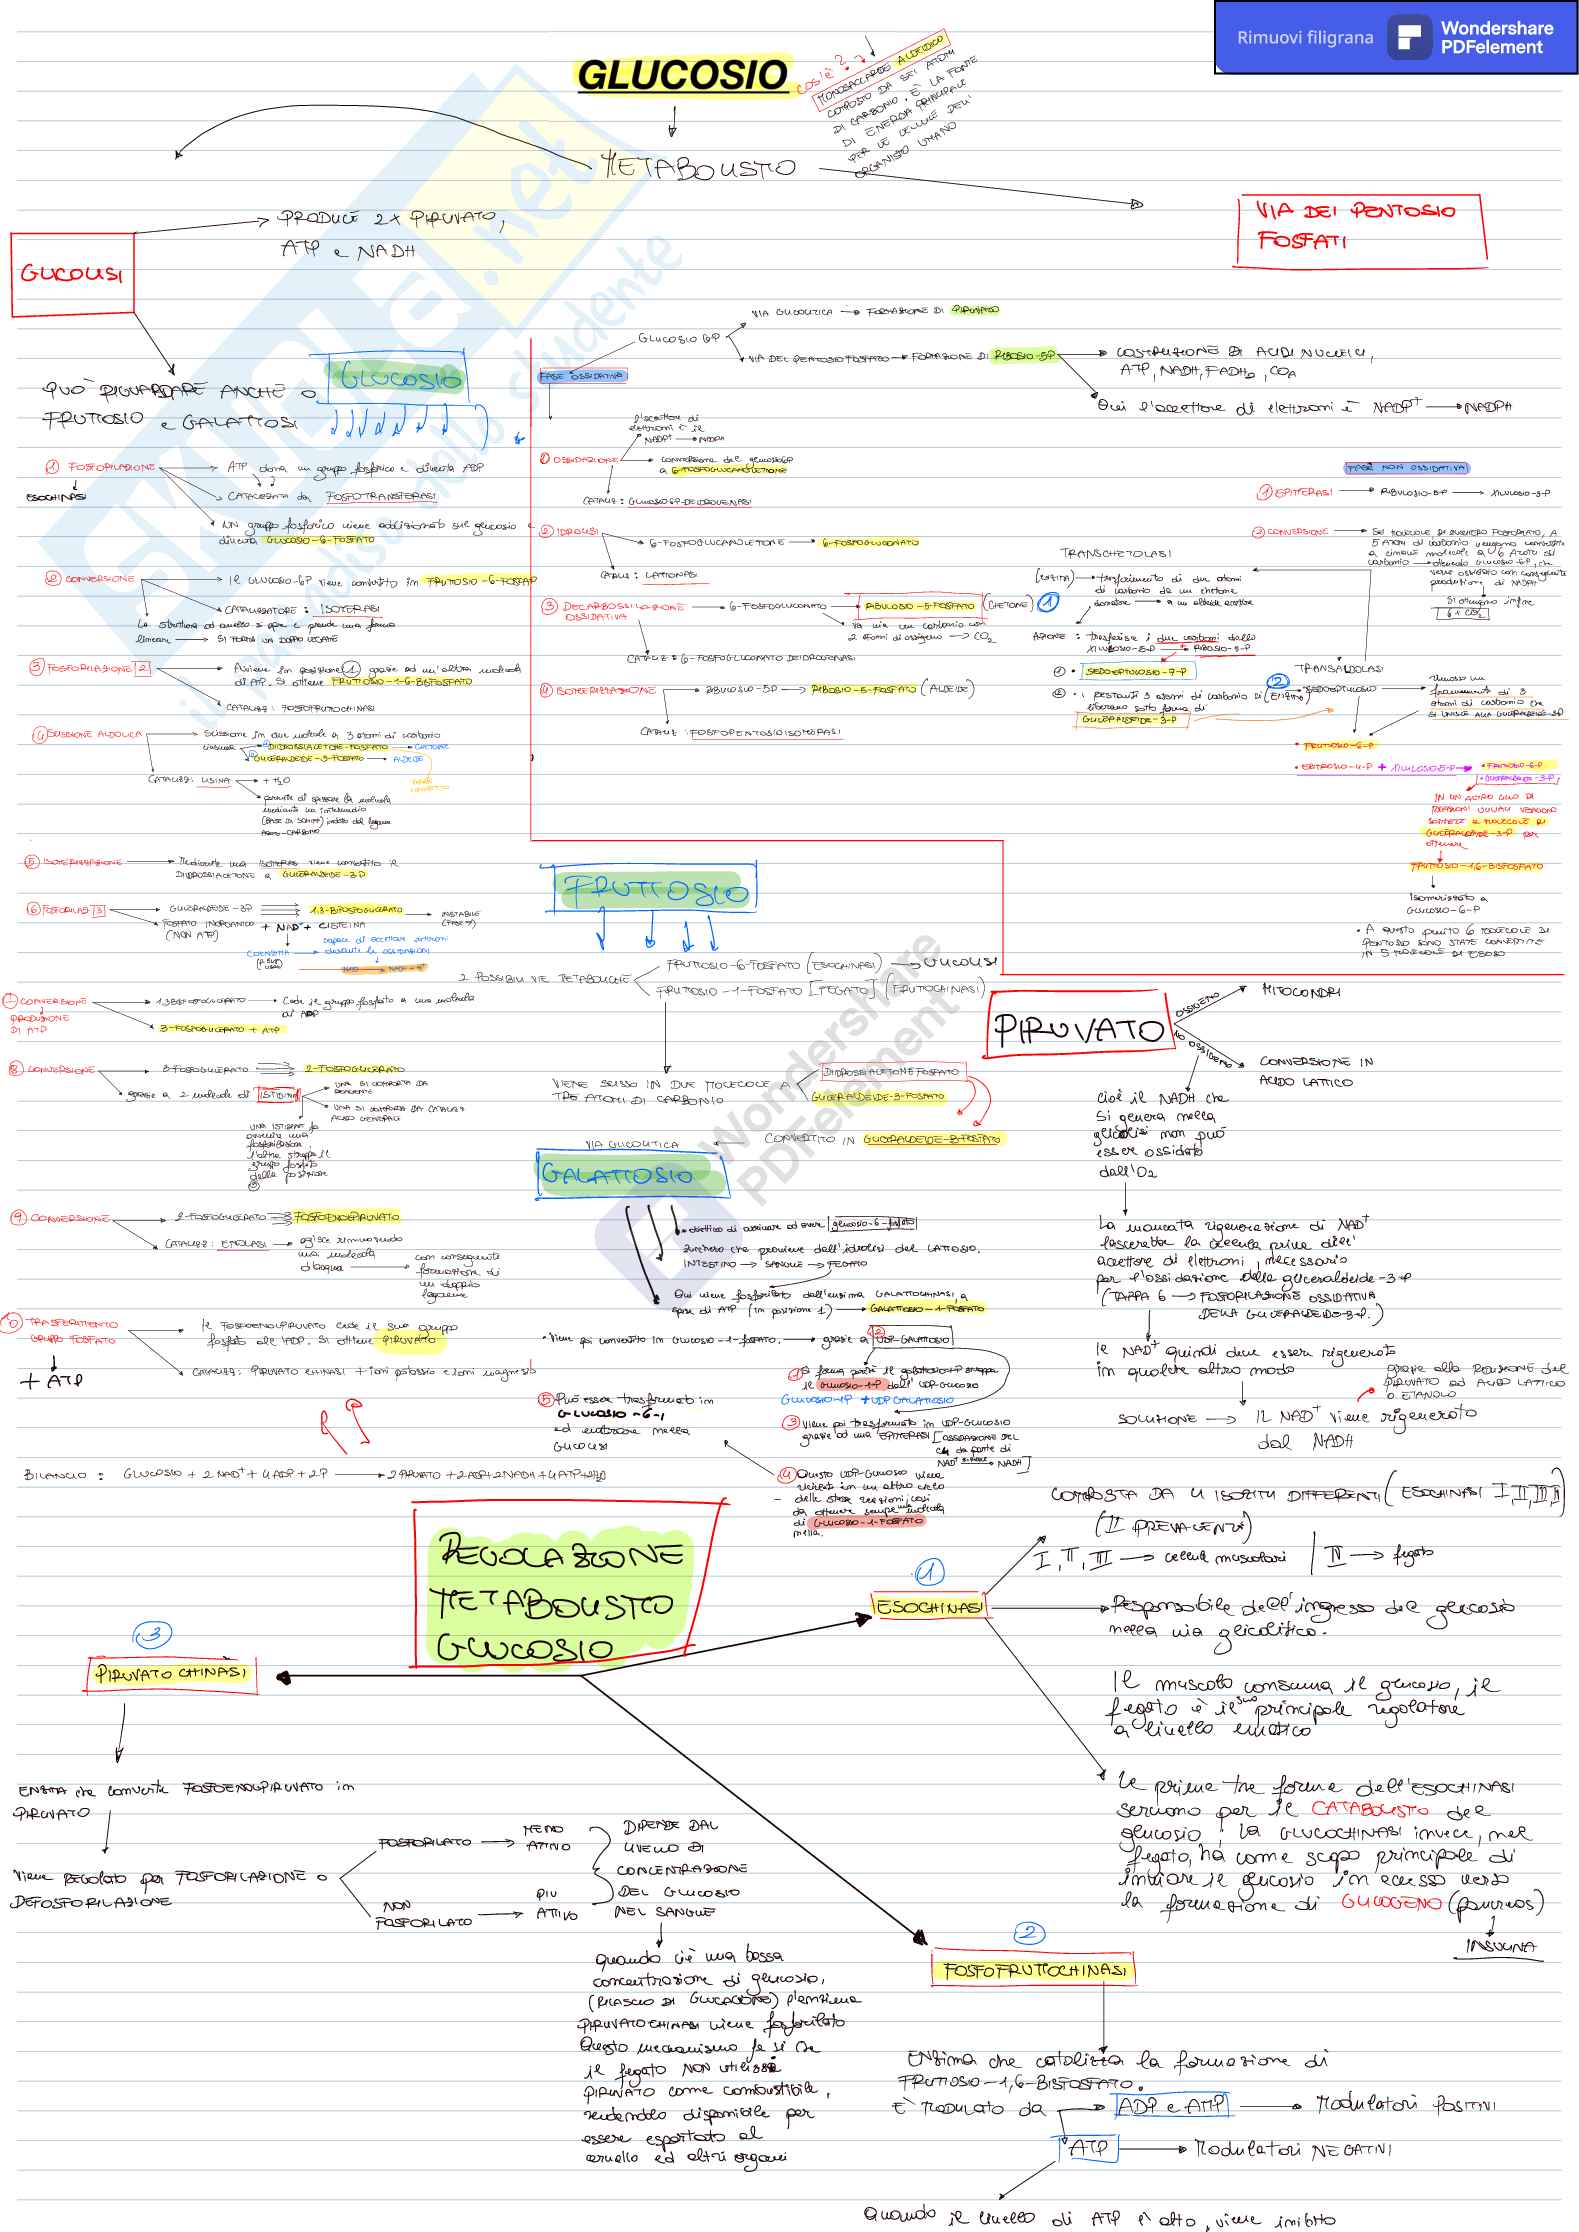 Rimuovi filigrana
Wondershare
PDFelement
GLUCOSIO
COS'È?
MONOSACCARIDE ALDEIDICO
COMPOSTO DA SEI ATOMI
DI CARBONIO, È LA FONTE
DI ENERGIA PRINCIPALE
PER LE CELLULE DELL'
ORGANISMO UMANO
METABOLISMO
GLICOLISI
PRODUCE 2x PIRUVATO,
ATP e NADH
VIA DEI PENTOSIO
FOSFATI
PUÒ RIGUARDARE ANCHE
FRUTTOSIO e GALATTOSI
GLUCOSIO
1 FOSFORILAZIONE
ESOCHINASI
ATP dona un gruppo fosforico e diventa ADP
CATALIZZATA da FOSFOTRANSFERASI
UN gruppo fosforico viene addizionato sul glucosio e
diventa GLUCOSIO-6-FOSFATO
2 CONVERSIONE
IL GLUCOSIO-6P viene convertito in FRUTTOSIO-6-FOSFATO
CATALIZZATORE: ISOMERASI
La struttura ad anello si apre e prende una forma
lineare SI FORMA UN DOPPIO LEGAME
3 FOSFORILAZIONE 2
Avviene in posizione 1 grazie ad un'altra molecola
di ATP. SI ottiene FRUTTOSIO-1-6-BISFOSFATO
CATALIZZ: FOSFOFRUTTOCHINASI
4 SCISSIONE ALDOLICA
Scissione in due molecole a 3 atomi di carbonio
DIIDROSSIACETONE-FOSFATO CHETONE
GLICERALDEIDE-3-FOSFATO ALDEIDE
CATALIZZ: LISINA
+ H2O
permette di spezzare la molecola
mediante un intermedio
(BASE DI SCHIFF) indotto dal legame
AZOTO-CARBONIO
5 ISOMERIZZAZIONE
Mediante una ISOMERASI viene convertito il
DIIDROSSIACETONE a GLICERALDEIDE-3P
6 FOSFORILAZ 3
GLICERALDEIDE-3P
1,3-BIFOSFOGLICERATO
INSTABILE
FOSFATO INORGANICO + NAD+ + CISTEINA
(NON ATP)
COENZIMA
capace di accettare elettroni
durante le ossidazioni
7 CONVERSIONE
PRODUZIONE
DI ATP
1,3BIFOSFOGLICERATO Cede il gruppo fosfato a una molecola
di ADP
3-FOSFOGLICERATO + ATP
8 CONVERSIONE
3-FOSFOGLICERATO
2-FOSFOGLICERATO
grazie a 2 molecole di ISTIDINA
UNA SI COMPORTA DA
DONATORE
UNA SI COMPORTA DA CATALIZZ
ACIDO GENERALE
UNA ISTIDINA fa
avvenire una
fosforilazione
l'altra strappa il
gruppo fosfato
dalla posizione
3
9 CONVERSIONE
2-FOSFOGLICERATO FOSFOENOLPIRUVATO
CATALIZZ: ENOLASI
agisce rimuovendo
una molecola
d'acqua
con conseguente
formazione di
un doppio
legame
10 TRASFERIMENTO
GRUPPO FOSFATO
+ ATP
IL FOSFOENOLPIRUVATO cede il suo gruppo
fosfato all'ADP. SI ottiene PIRUVATO
CATALIZZ: PIRUVATO CHINASI + ioni potassio e ioni magnesio
BILANCIO: GLUCOSIO + 2 NAD+ + 4 ADP + 2P 2 PIRUVATO + 2ADP + 2NADH + 4ATP + 2H2O
GLUCOSIO 6P
VIA GLICOLITICA FORMAZIONE DI PIRUVATO
VIA DEL PENTOSIO FOSFATO FORMAZIONE DI RIBOSIO-5P
COSTRUZIONE DI ACIDI NUCLEICI,
ATP, NADH, FADH2, COA
Qui l'accettore di elettroni è NADP+ NADPH
FASE OSSIDATIVA
1 OSSIDAZIONE
l'accettore di
elettroni è il
NADP+ NADPH
conversione del glucosio6P
a 6-FOSFOGLUCANOLETTONE
CATALIZ: GLUCOSIO6P-DEIDROGENASI
2 IDROLISI
6-FOSFOGLUCANOLETTONE 6-FOSFOGLUCONATO
CATALIZ: LATTONASI
3 DECARBOSSILAZIONE
OSSIDATIVA
6-FOSFOGLUCONATO RIBULOSIO-5-FOSFATO (CHETONE)
va via un carbonio con
2 atomi di ossigeno CO2
CATALIZ: 6-FOSFOGLUCONATO DEIDROGENASI
4 ISOMERIZZAZIONE
RIBULOSIO-5P RIBOSIO-5-FOSFATO (ALDEIDE)
CATALIZ: FOSFOPENTOSIOISOMERASI
FASE NON OSSIDATIVA
1 EPIMERASI RIBULOSIO-5P XILULOSIO-5-P
2 CONVERSIONE
Sei MOLECOLE DI ZUCCHERO FOSFORILATO, A
5 ATOMI di carbonio vengono convertite
a cinque molecole a 6 ATOMI di
carbonio ottenendo GLUCOSIO-6P, che
viene ossidato con conseguente
produzione di NADPH
Si ottengono infine
6 x CO2
TRANSCHETOLASI
(ENZIMA) trasferimento di due atomi
di carbonio da un chetone
donatore a un aldeide accettore
1
AZIONE: trasferisce i due carboni dallo
XILULOSIO-5-P RIBOSIO-5-P
1 SEDOEPTULOSIO-7-P
2 I RESTANTI 3 atomi di carbonio si
liberano sotto forma di
GLICERALDEIDE-3-P
TRANSALDOLASI
2 (ENZIMA)
SEDOEPTULOSIO
rimosso un
frammento di 3
atomi di carbonio che
SI UNISCE ALLA GLICERALDEIDE-3P
FRUTTOSIO-6-P
ERITROSIO-4-P + XILULOSIO5-P FRUTTOSIO-6-P
GLICERALDEIDE-3-P
IN UN ALTRO CICLO DI
REAZIONI UGUALI VENGONO
SOMMATE 2 MOLECOLE DI
GLICERALDEIDE-3-P PER
ottenere
FRUTTOSIO-1,6-BISFOSFATO
Isomerizzato a
GLUCOSIO-6-P
A questo punto 6 MOLECOLE DI
PENTOSO SONO STATE CONVERTITE
IN 5 MOLECOLE DI ESOSO
FRUTTOSIO
2 POSSIBILI VIE METABOLICHE
FRUTTOSIO-6-FOSFATO (ESOCHINASI) GLICOLISI
FRUTTOSIO-1-FOSFATO [FEGATO] (FRUTTOCHINASI)
VIENE SCISSO IN DUE MOLECOLE A
TRE ATOMI DI CARBONIO
DIIDROSSIACETONE FOSFATO
GLICERALDEIDE-3-FOSFATO
VIA GLICOLITICA CONVERTITO IN GLICERALDEIDE-3-FOSFATO
GALATTOSIO
obiettivo di arrivare ad avere glucosio-6-fosfato
zucchero che proviene dall'idrolisi del LATTOSIO.
INTESTINO SANGUE FEGATO
Qui viene fosforilato dall'enzima GALATTOCHINASI, a
spese di ATP (in posizione 1) GALATTOSIO-1-FOSFATO
Viene poi convertito in GLUCOSIO-1-fosfato. grazie a UDP-GALATTOSIO
2
1 Si forma perché il galattosio-1P strappa
il GLUCOSIO-1P dall'UDP-GLUCOSIO
GLUCOSIO-1P + UDP GALATTOSIO
3 Viene poi trasformato in UDP-GLUCOSIO
grazie ad una EPIMERASI [OSSIDAZIONE DEL
C4 da parte di
NAD+ NADH]
4 Questo UDP-GLUCOSIO viene
riciclato in un altro ciclo
delle stesse reazioni, così
da ottenere sempre una molecola
di GLUCOSIO-1-FOSFATO
5 Può essere trasformato in
GLUCOSIO-6-P
ed entrare nella
GLICOLISI
PIRUVATO
OSSIGENO
MITOCONDRI
NO OSSIGENO
CONVERSIONE IN
ACIDO LATTICO
Cioè il NADH che
si genera nella
glicolisi non può
esser ossidato
dall'O2
La mancata rigenerazione di NAD+
lascerebbe la cellula priva dell'
accettore di elettroni, necessario
per l'ossidazione della gliceraldeide-3-P
(TAPPA 6 FOSFORILAZIONE OSSIDATIVA
DELLA GLICERALDEIDE-3-P.)
IL NAD+ quindi deve esser rigenerato
in qualche altro modo
grazie alla RIDUZIONE del
PIRUVATO ad ACIDO LATTICO
O ETANOLO
SOLUZIONE IL NAD+ viene rigenerato
dal NADH
REGOLAZIONE
METABOLISMO
GLUCOSIO
1
ESOCHINASI
COMPOSTA DA 4 ISOZIMI DIFFERENTI (ESOCHINASI I, II, III, IV)
(II PREVALENTE)
I, II, III cellule muscolari | IV fegato
Responsabile dell'ingresso del glucosio
nella via glicolitica.
Il muscolo consuma il glucosio, il
fegato è il suo principale regolatore
a livello ematico
Le prime tre forme dell'ESOCHINASI
servono per il CATABOLISMO del
glucosio; la GLUCOCHINASI invece, nel
fegato, ha come scopo principale di
inviare il glucosio in eccesso verso
la formazione di GLICOGENO (pancreas)
INSULINA
2
FOSFOFRUTTOCHINASI
ENZIMA che catalizza la formazione di
FRUTTOSIO-1,6-BISFOSFATO.
È MODULATO da ADP e AMP Modulatori POSITIVI
ATP Modulatori NEGATIVI
Quando il livello di ATP è alto, viene inibito
3
PIRUVATO CHINASI
ENZIMA che converte FOSFOENOLPIRUVATO in
PIRUVATO
Viene REGOLATO per FOSFORILAZIONE o
DEFOSFORILAZIONE
FOSFORILATO
MENO
ATTIVO
NON
FOSFORILATO
PIÙ
ATTIVO
DIPENDE DAL
LIVELLO DI
CONCENTRAZIONE
DEL GLUCOSIO
NEL SANGUE
quando c'è una bassa
concentrazione di glucosio,
(RILASCIO DI GLUCAGONE) l'enzima
PIRUVATOCHINASI viene fosforilato
Questo meccanismo fa si che
il fegato NON utilizzi
PIRUVATO come combustibile,
rendendolo disponibile per
essere esportato al
cervello ed altri organi
SKUOLA.net
il paradiso dello studente
Wondershare
PDFelement